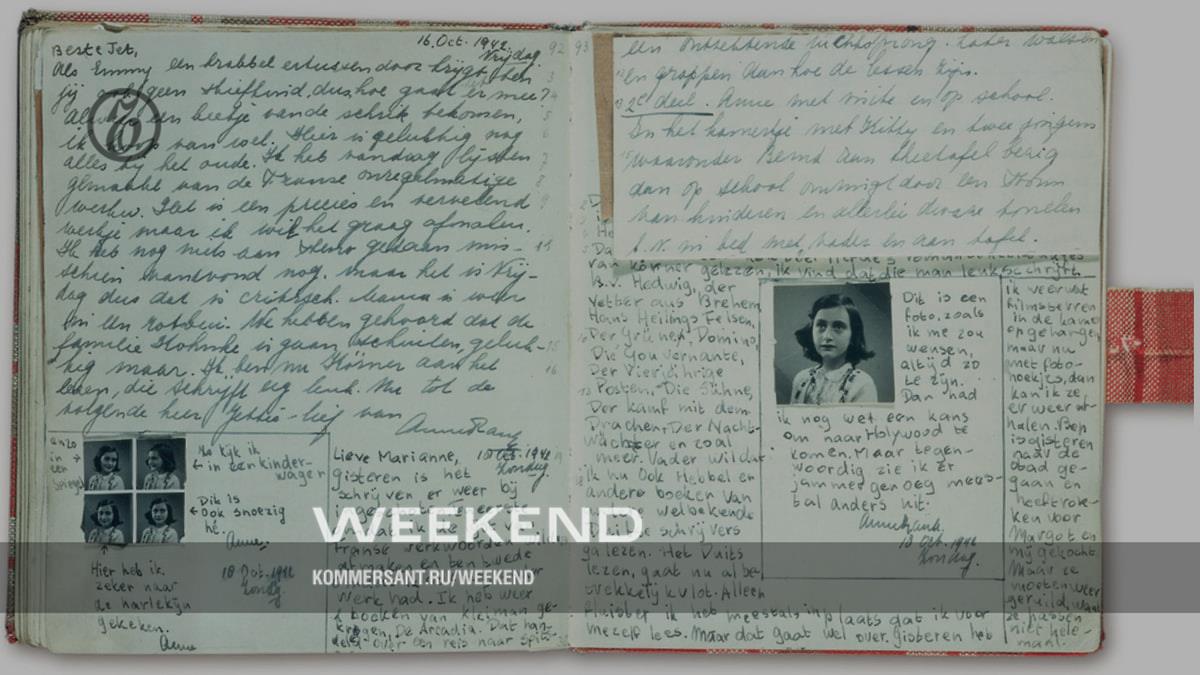 16. Oct. 1942
Vrijdag.
Beste Jet,
Als Emmy een krabbel ertussen door krijgt, ben
jij ook geen stiefkind, dus hoe gaat er mee?
een beetje van de schrik bekomen,
van wel. Hier is gelukkig nog
alles bij het oude. Ik heb vandaag lijsten
gemaakt van de Franse onregelmatige
werkw. Het is een precies en vervelend
werkje maar ik wil het graag afmaken.
Ik heb nog niets aan Steno gedaan mis-
schien vanavond nog. maar het is Vrij-
dag dus dat is critisch. Mama is weer
in een rotbui. We hebben gehoord dat de
familie is gaan schuilen, geluk-
kig maar. Ik ben nu Körner aan het
lezen, die schrijft erg leuk. Nu tot de
volgende keer Jetje-lief van
Anne Frank
anzo
in
een
spiegel
Ha kijk ik
in een kinder-
wagen
Dit is
ook snoezig
hé.
Anne.
Hier heb ik
zeker naar
de harlekijn
gekeken.
18 Oct. 1942
Zondag
Anne
Lieve Marianne,
18 Oct. 1942
Zondag.
Gisteren is het
schrijven er weer bij
Franse werkwoorden
werk had. Ik heb weer
2 boeken van Kleiman ge-
kregen, De Arcadia. Dat han-
delt over een reis naar Spits-
92 93
een ontzettende luchtsprong. Later walsen
en grappen aan hoe de lessen zijn.
2e deel. Anne met visite en op school.
In het kamertje met Kitty en twee jongens
waaronder Bernd aan theetafel bezig
dan op school omringd door een stroom
van kinderen en allerlei dwaze tonelen
b.v. in bed met vader en aan tafel.
van Körner gelezen, ik vind dat die man leuk schrijft.
B.v. Hedwig, der
Vetter aus Bremen,
Hans Heilings Felsen,
Der Grüne Domino,
Die Gouvernante,
Der Vierjährige
Posten, Die Sühne,
Der kamf mit dem
Drachen, Der Nacht-
wächter en zoal
meer. Vader wil dat
ik nu ook Hebbel en
andere boeken van
welbekende
Duitse schrijvers
ga lezen. Het Duits
lezen, gaat nu al be-
trekkelijk vlot. Alleen
fluister ik het meestal inplaats dat ik voor
mezelf lees. Maar dat gaat wel over. gisteren heb
Dit is een
foto, zoals
ik me zou
wensen,
altijd zo
te zijn.
Dan had
ik nog wel een kans
om naar Holywood te
komen. Maar tegen-
woordig zie ik er
jammer genoeg mees-
tal anders uit.
Annefrank.
18 Oct. 1942
Zondag.
ik weer wat
filmsterren
in de kamer
opgehangen,
maar nu
met foto-
hoekjes, dan
kan ik ze
er weer af-
halen. Bep
is gisteren
naar de
stad ge-
gaan en
heeft rok-
ken voor
Margot en
mij gekocht.
Maar ze
moeten weer
geruild, want
ze passen
niet hele-
maal.
WEEKEND
KOMMERSANT.RU/WEEKEND